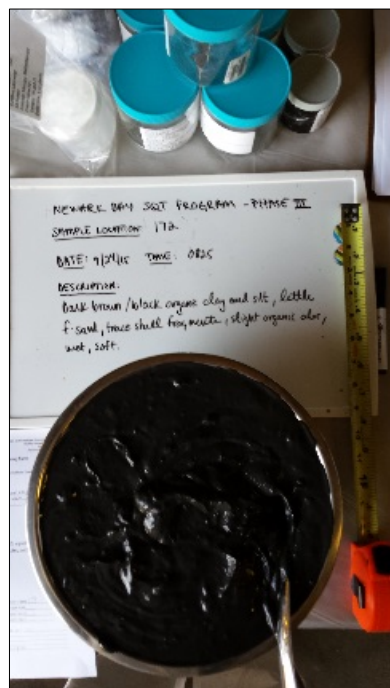 NEWARK BAY SQT PROGRAM - PHASE III
SAMPLE LOCATION: 172
DATE: 9/24/15 TIME: 0825
DESCRIPTION:
Dark brown/black organic clay and silt, little
f. sand, trace shell fragments, slight organic odor,
wet, soft.